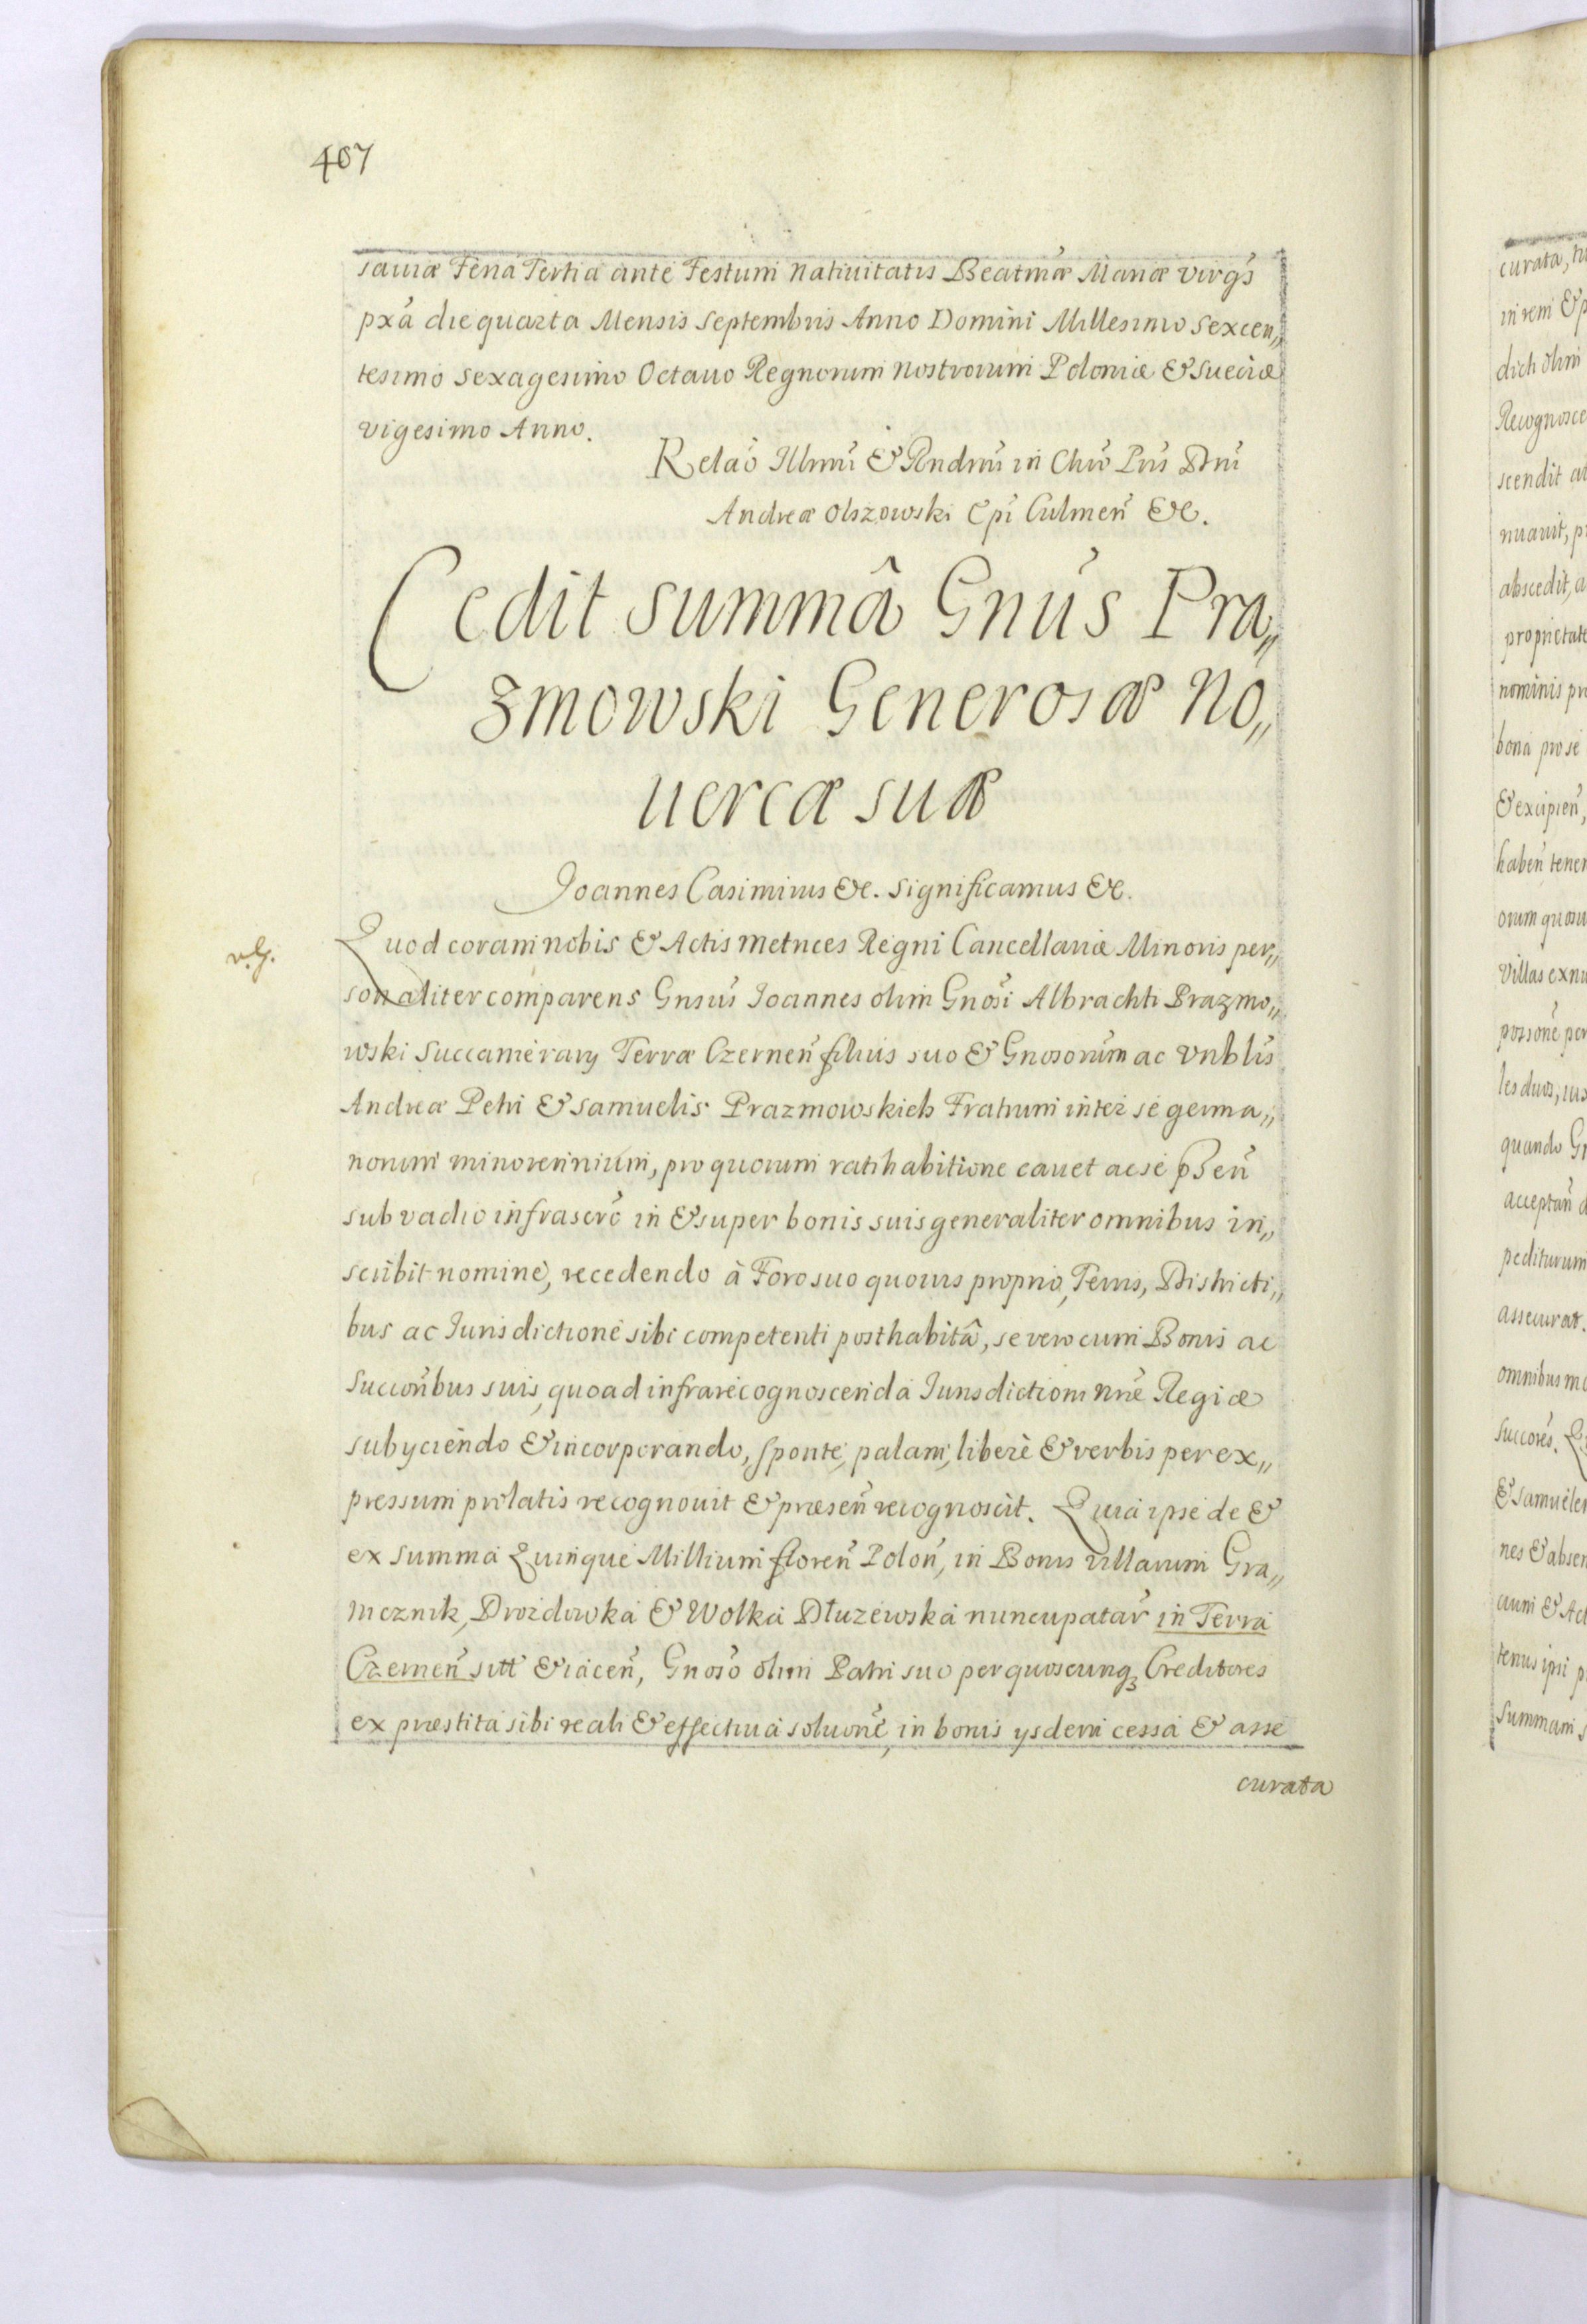 407
sauiæ Feria Tertia ante Festum Natiuitatis Beatmæ Mariæ Virgs
pxa die quarta Mensis Septembris Anno Domini Millesimo Sexcen„
tesimo Sexagesimo Octauo Regnorum Nostrorum Poloniæ & Sueciæ
vigesimo Anno.
Relao Illmi & Rndmi in Chro Pris Dni
Andreæ Olszowski Epi Culmen &c.
Cedit summâ Gnus Pra„
zmowski Generosæ No„
uercæ suæ
Joannes Casimirus &c. Significamus &c.
v.G.
Quod coram nobis & Actis Metrices Regni Cancellariæ Minoris per„
sonaliter comparens Gnsus Joannes olim Gnosi Albrachti Prazmo„
wski Succamerary Terræ Czernen filius suo & Gnosorum ac Vnblis
Andreæ Petri & Samuelis Prazmowskich Fratrum inter se germa„
norum minorennium, pro quorum ratihabitione cauet ac se pnsen
sub vadio infrascro in & super bonis suis generaliter omnibus in„
scribit nomine, recedendo à Foro suo quouis proprio, Terris, Districti„
bus ac Jurisdictione sibi competenti posthabitâ, se vero cum Bonis ac
Succoribus suis, quoad infrarecognoscenda Jurisdictioni nræ Regiæ
subyciendo & incorporando, sponte, palam, liberè & verbis per ex„
pressum prolatis recognouit & præsen recognoscit. Quia ipse de &
ex summa Quinque Millium floren Polon, in Bonis Villarum Gra„
nicznik, Drozdowka & Wolka Dłuzewska nuncupatar in Terra
Czernen sitt & iacen, Gnoso olim Patri suo per quoscunq3 Creditores
ex præstita sibi reali & effectiua soluone, in bonis ysdem cessa & asse
curata